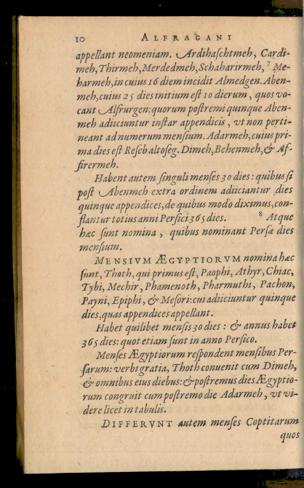 10 ALFRAGANI
appellant neomeniam. Ardihaschtmeh, Cardi-
meh, Thirmeh, Merdedmeh, Schaharirmeh, 7 Me-
harmeh, in cuius 16 diem incidit Almedgen. Aben-
meh, cuius 25 dies initium est 10 dierum, quos vo-
cant Alfurgen: quorum postremi quinque Aben-
meh adiiciuntur instar appendicis, vt non perti-
neant ad numerum mensium. Adarmeh, cuius pri-
ma dies est Reschaltoseg. Dimeh, Behenmeh, & Af-
firermeh.
Habent autem singuli menses 30 dies: quibus si
post Abenmeh extra ordinem adiiciantur dies
quinque appendices, de quibus modo diximus, con-
flantur totius anni Persici 365 dies. 8 Atque
hæc sunt nomina, quibus nominant Persæ dies
mensium.
MENSIVM ÆGYPTIORVM nomina hæc
sunt, Thoth, qui primus est, Paophi, Athyr, Chiac,
Tybi, Mechir, Phamenoth, Pharmuthi, Pachon,
Payni, Epiphi, & Mesori: cui adiiciuntur quinque
dies, quas appendices appellant.
Habet quilibet mensis 30 dies: & annus habet
365 dies: quot etiam sunt in anno Persico.
Menses Ægyptiorum respondent mensibus Per-
sarum: verbi gratia, Thoth conuenit cum Dimeh,
& omnibus eius diebus: & postremus dies Ægyptio-
rum congruit cum postremo die Adarmeh, vt vi-
dere licet in tabulis.
DIFFERVNT autem menses Coptitarum
quos